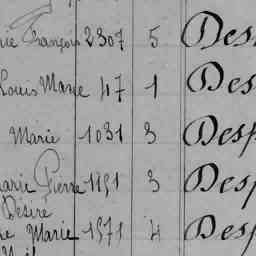 rie François 2307 5 Des
Louis Marie 47 1 Des
Marie 1031 3 Desp
Marie Pierre 1191 3 Desp
Désiré
Marie 1971 4 Desp